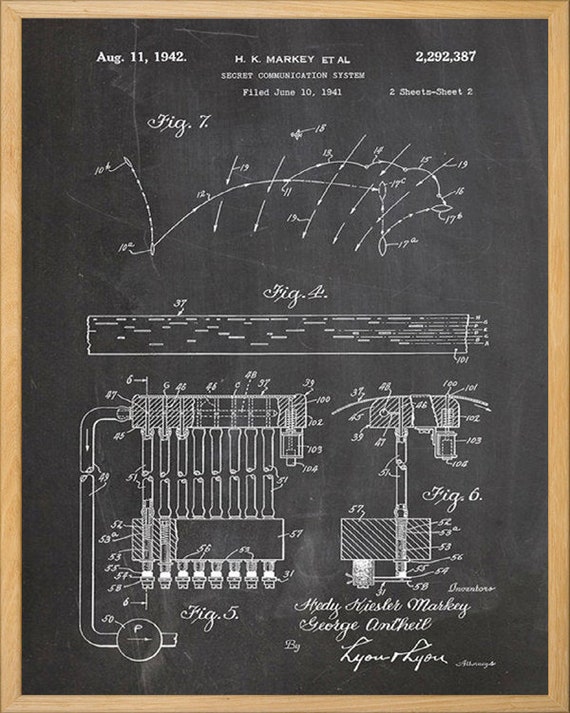 Aug. 11, 1942.
H. K. MARKEY ET AL
2,292,387
SECRET COMMUNICATION SYSTEM
Filed June 10, 1941
2 Sheets-Sheet 2
Fig. 7.
18
10b 19 13 14 15 19
12 11 17c 16
19 17b
10a 17a
Fig. 4.
37
101
Fig. 5.
47 6 G 46 46 C 4B 37 39
100
102
45
103
104
49 51 51
52 57
53a
53
55 56 58 31
54
58
6
50 P
Fig. 6.
37 48 100 101
45 46 102
39 47 103
104
51
57 52
53a
53
55
56
54
31 58
Inventors
Hedy Kiesler Markey
George Antheil
By
Lyon & Lyon
Attorneys